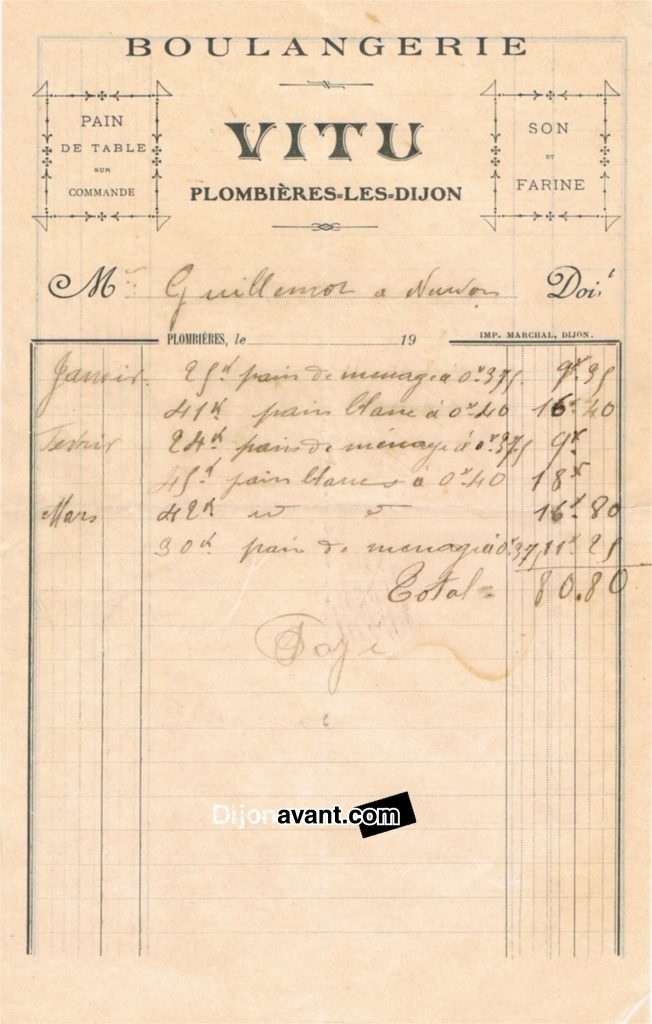 BOULANGERIE
PAIN
DE TABLE
SUR
COMMANDE
VITU
PLOMBIÈRES=LES=DIJON
SON
ET
FARINE
M Guillemot a Doit
PLOMBIÈRES, le 19
IMP. MARCHAL, DIJON.
Janvier. 25k pain de menage à 0f.375. 9f.35
41k pain blanc à 0f.40 16f.40
Fevrier 24k pain de ménage à 0f.375 9f
45k pain blanc à 0f.40 18f
Mars 42k 16f.80
30k pain de menage à 0.37 11f.25
Total = 80.80
Payé
Dijonavant.com